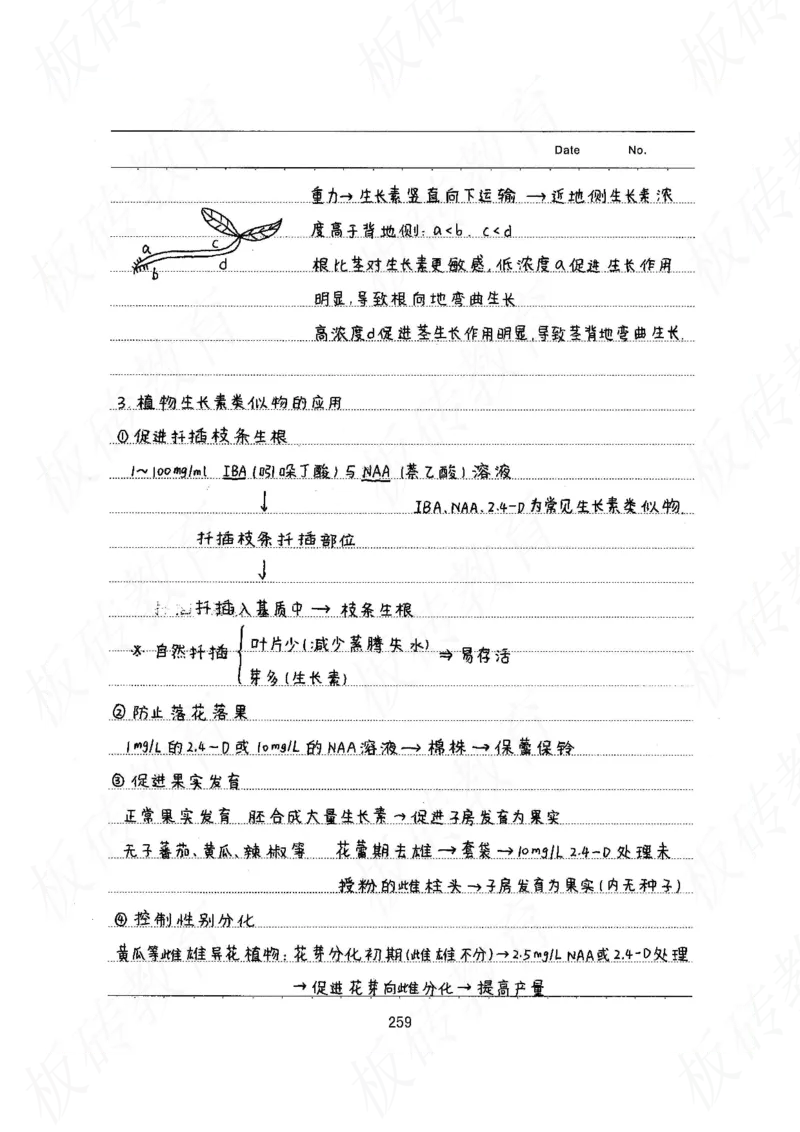 板砖教育
Date No.
重力→生长素竖直向下运输→近地侧生长素浓
度高于背地侧: a<b、c<d
a
b
c
d
根比茎对生长素更敏感,低浓度a促进生长作用
明显,导致根向地弯曲生长
高浓度d促进茎生长作用明显,导致茎背地弯曲生长.
3. 植物生长素类似物的应用
①促进扦插枝条生根
1~100mg/ml IBA(吲哚丁酸)与NAA(萘乙酸)溶液
↓ IBA、NAA、2.4-D为常见生长素类似物.
扦插枝条扦插部位
↓
扦插入基质中→枝条生根
※自然扦插 { 叶片少(:减少蒸腾失水)
芽多(生长素) ⇒易存活
②防止落花落果
1mg/L的2.4-D或10mg/L的NAA溶液→棉株→保蕾保铃
③促进果实发育
正常果实发育 胚合成大量生长素→促进子房发育为果实
无子蕃茄、黄瓜、辣椒等 花蕾期去雄→套袋→10mg/L 2.4-D处理未
授粉的雌柱头→子房发育为果实(内无种子)
④控制性别分化
黄瓜等雌雄异花植物: 花芽分化初期(雌雄不分)→2.5mg/L NAA或2.4-D处理
→促进花芽向雌分化→提高产量
259